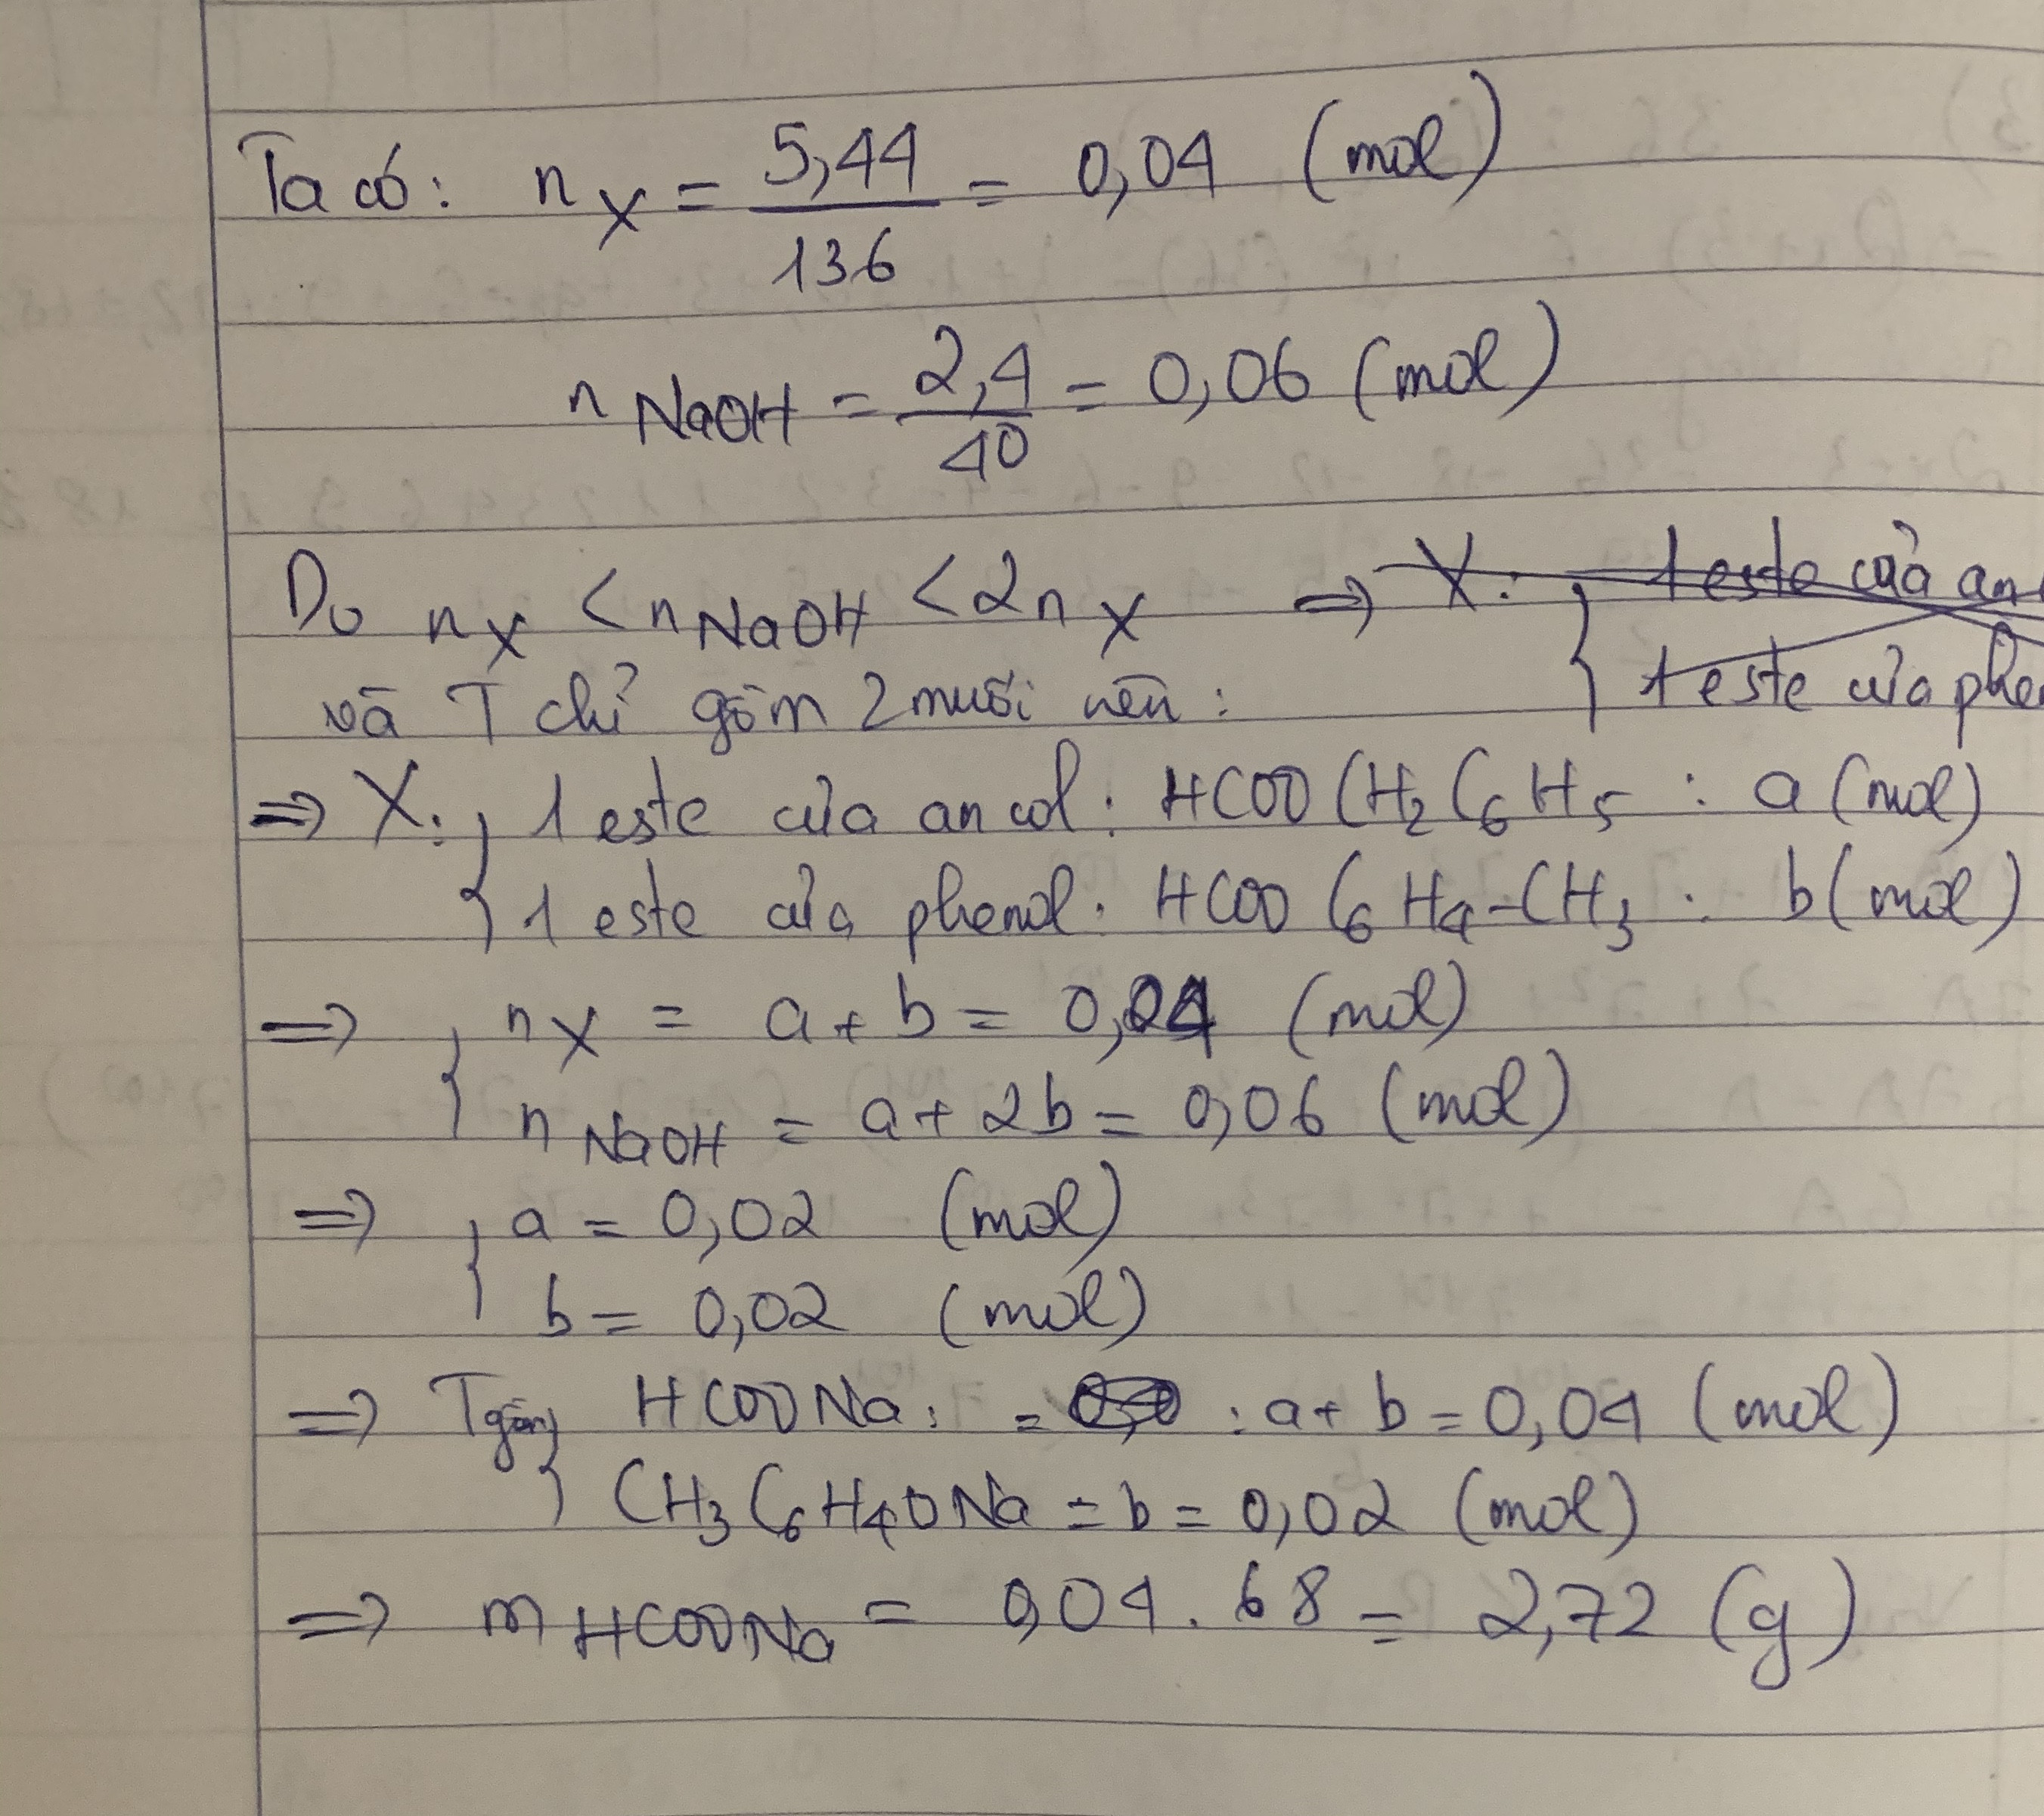 Ta có: nX = 5,44/136 = 0,04 (mol)
nNaOH = 2,4/40 = 0,06 (mol)
Do nX < nNaOH < 2nX ⇒ X: { 1 este của an
1 este của phe
và T chỉ gồm 2 muối nên:
⇒ X: { 1 este của ancol: HCOOCH2C6H5 : a (mol)
1 este của phenol: HCOOC6H4-CH3 : b (mol)
⇒ { nX = a + b = 0,04 (mol)
nNaOH = a + 2b = 0,06 (mol)
⇒ { a = 0,02 (mol)
b = 0,02 (mol)
⇒ T gồm { HCOONa : = : a + b = 0,04 (mol)
CH3C6H4ONa = b = 0,02 (mol)
⇒ mHCOONa = 0,04 . 68 = 2,72 (g)